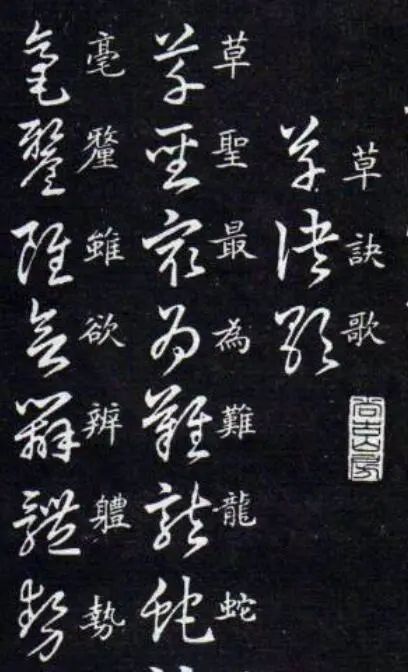 草訣歌
尚古山房
草訣歌
草聖最為難龍蛇
草聖最為難龍蛇
毫釐雖欲辨軆勢
毫釐雖欲辨體勢